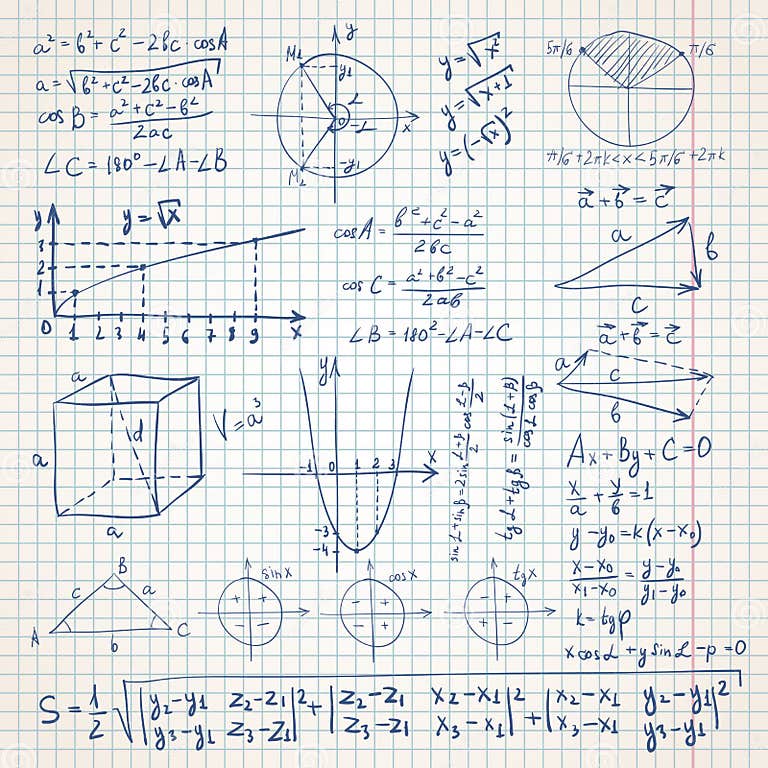 a² = b² + c² - 2bc · cosA
a = √b² + c² - 2bc · cosA
cos B = a² + c² - b² / 2ac
∠C = 180° - ∠A - ∠B
y
M₁
y₁
α
0
-α
x
-y₁
M₂
y = √x²
y = √x+1
y = (-√x)²
5π/6
π/6
π/6 + 2πk < x < 5π/6 + 2πk
y
y = √x
3
2
1
0 1 2 3 4 5 6 7 8 9 x
cosA = b² + c² - a² / 2bc
cos C = a² + b² - c² / 2ab
∠B = 180² - ∠A - ∠C
a + b = c
a
b
c
a + b = c
a
c
b
a
a
d
a
V = a³
y
x
-1 0 1 2 3
-3
-4
sin α + sin β = 2 sin α+β / 2 cos α-β / 2
tg α + tg β = sin(α+β) / cos α cos β
Ax + By + C = 0
x/a + y/b = 1
y - y₀ = k(x - x₀)
x - x₀ / x₁ - x₀ = y - y₀ / y₁ - y₀
k = tgφ
x cos α + y sin α - p = 0
B
c
a
A
b
C
sinx
+ +
- -
cosx
- +
- +
tgx
- +
+ -
S = 1/2 √ |y₂-y₁ z₂-z₁|² + |z₂-z₁ x₂-x₁|² + |x₂-x₁ y₂-y₁|²
y₃-y₁ z₃-z₁ z₃-z₁ x₃-x₁ x₃-x₁ y₃-y₁